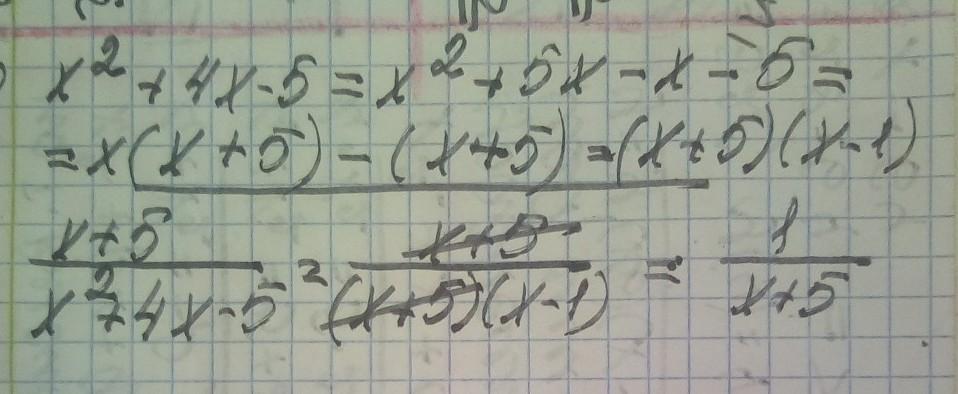 x² + 4x - 5 = x² + 5x - x - 5 =
= x(x + 5) - (x + 5) = (x + 5)(x - 1)
(x + 5)/(x² + 4x - 5) = (x + 5)/((x + 5)(x - 1)) = 1/(x + 5)